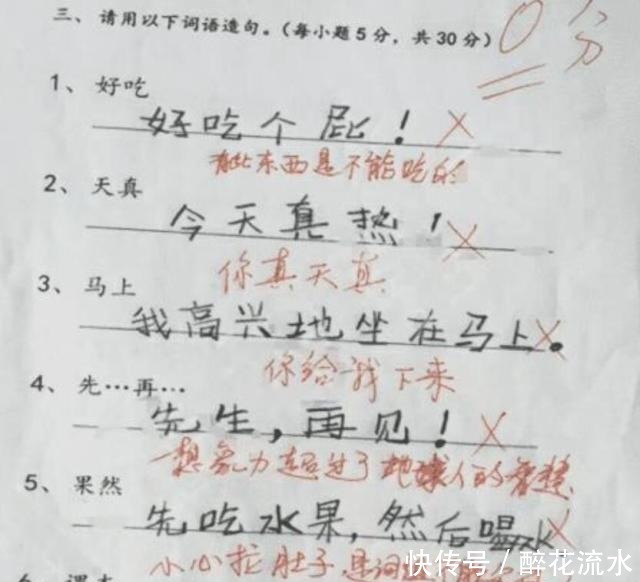 三、请用以下词语造句。(每小题5分，共30分) 0分
1、好吃
好吃个屁！
有些东西是不能吃的
2、天真
今天真热！
你真天真
3、马上
我高兴地坐在马上。
你给我下来
4、先…再…
先生，再见！
想象力超过了地球人的智慧
5、果然
先吃水果，然后喝水
小心拉肚子 是词
快传号/醉花流水